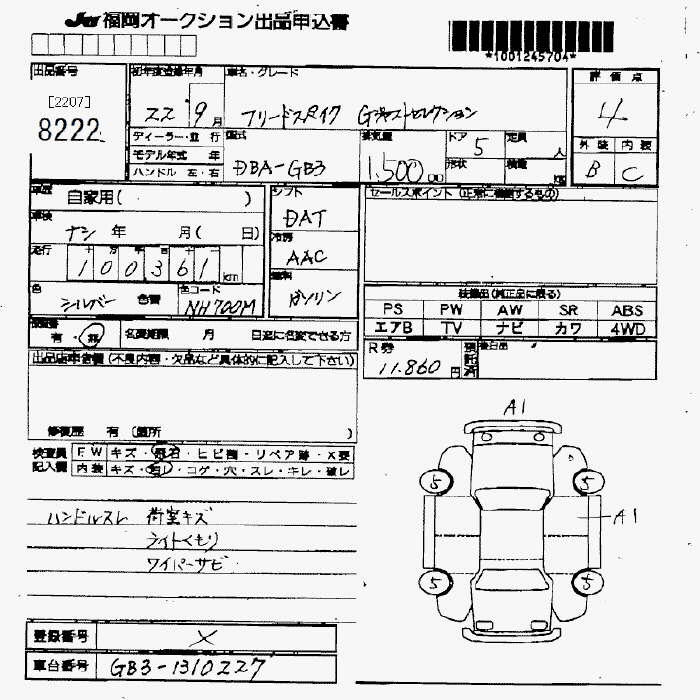 JU 福岡オークション出品申込書
*1001245704*
出品番号
[2207]
8222
初年度登録年月
22 9月
車名・グレード
フリードスパイク Gジャストセレクション
評価点
4
外装 内装
B C
ディーラー・並行
モデル年式 年
ハンドル 左・右
型式
DBA-GB3
排気量
1,500cc
ドア 5
形状
定員 人
積量 kg
車歴
自家用( )
車検
ナシ 年 月( 日)
走行
100361km
色
シルバー 色替
色コード
NH700M
シフト
DAT
冷房
AAC
燃料
ガソリン
セールスポイント (正常に機能するもの)
装備品(純正品に限る)
PS PW AW SR ABS
エアB TV ナビ カワ 4WD
有・無
名変期限 月 日迄に名変できる方
R券
11.860円
預託済
出品店申告欄 (不良内容・欠品など具体的に記入して下さい)
修復歴 有 (箇所 )
検査員
記入欄
FW キズ・飛石・ヒビ割・リペア跡・X要
内装 キズ・汚レ・コゲ・穴・スレ・キレ・破レ
ハンドルスレ 荷室キズ
ライトくもり
ワイパーサビ
A1
5 5
A1
5 5
登録番号 X
車台番号 GB3-1310227